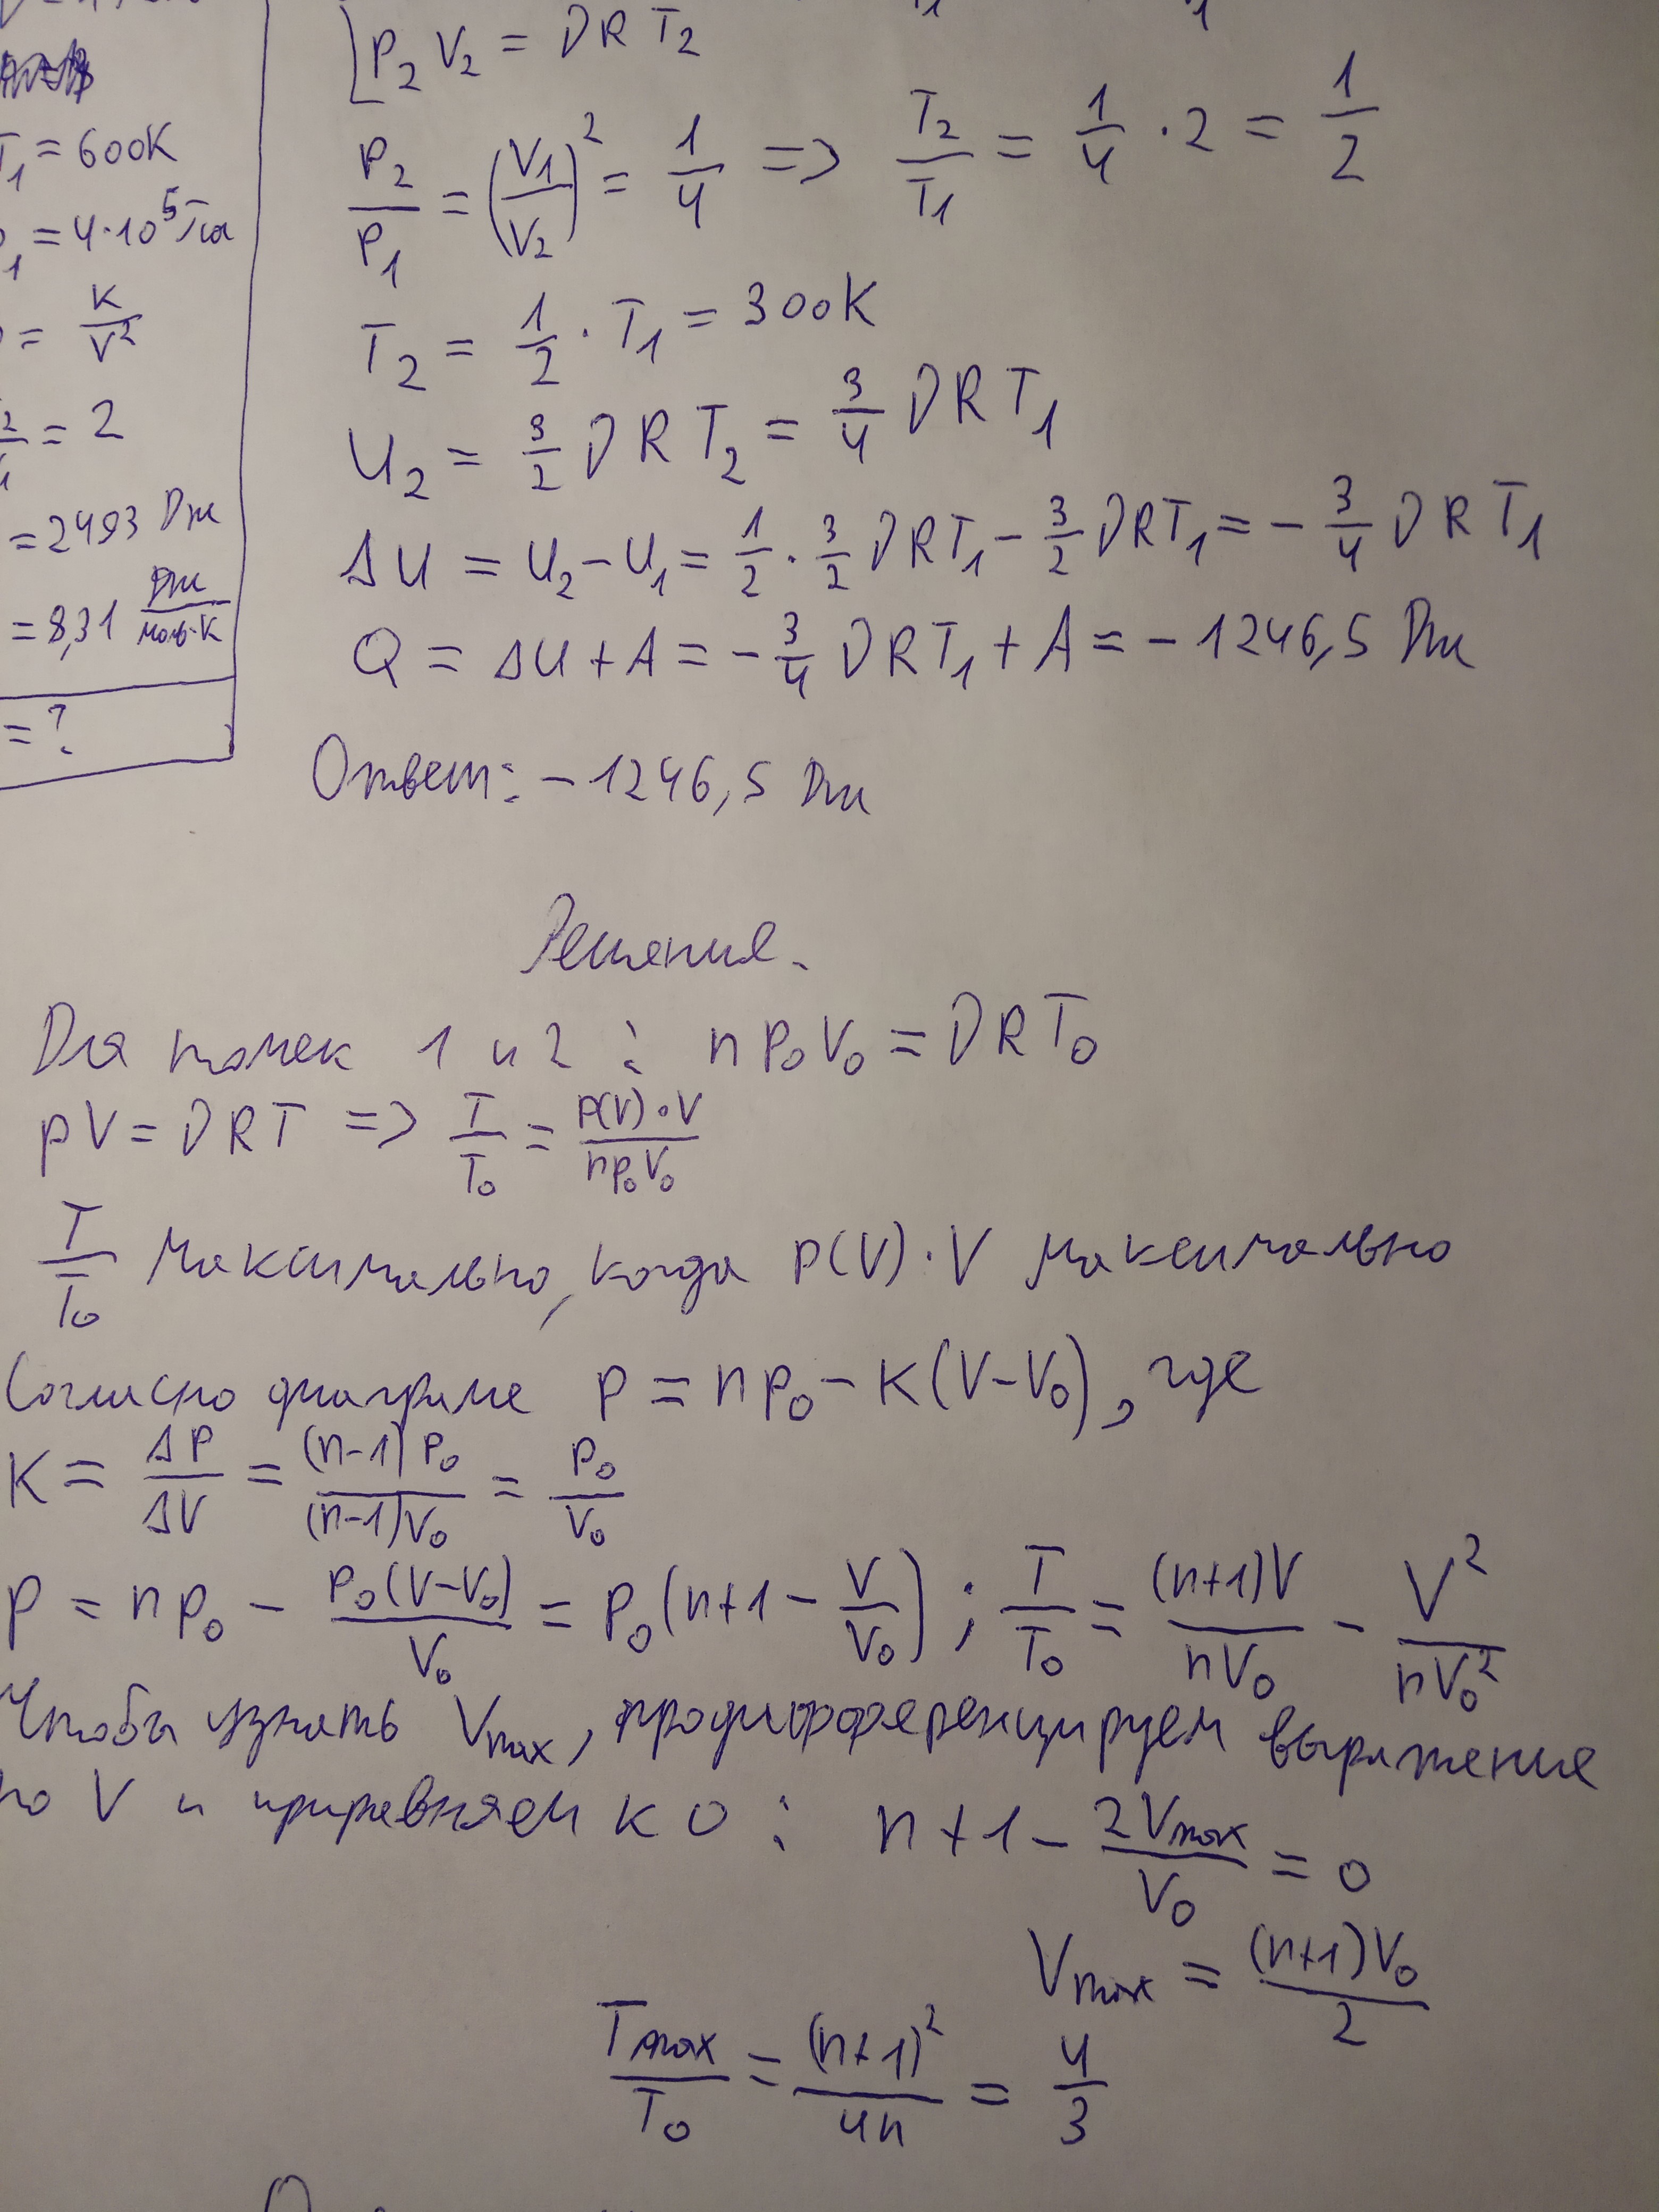 T₁ = 600K
p₁ = 4·10⁵ Па
= K/V²
= 2
= 2493 Дж
= 8,31 Дж/моль·К
= ?
p₂V₂ = νRT₂
p₂/p₁ = (V₁/V₂)² = 1/4 => T₂/T₁ = 1/4 · 2 = 1/2
T₂ = 1/2 · T₁ = 300K
U₂ = 3/2 νRT₂ = 3/4 νRT₁
ΔU = U₂ - U₁ = 1/2 · 3/2 νRT₁ - 3/2 νRT₁ = - 3/4 νRT₁
Q = ΔU + A = - 3/4 νRT₁ + A = - 1246,5 Дж
Ответ: - 1246,5 Дж
Решение.
Для точек 1 и 2 : np₀V₀ = νRT₀
pV = νRT => T/T₀ = p(V)·V/np₀V₀
T/T₀ максимально, когда p(V)·V максимально
Согласно диаграме p = np₀ - K(V-V₀), где
K = Δp/ΔV = (n-1)p₀/(n-1)V₀ = p₀/V₀
p = np₀ - p₀(V-V₀)/V₀ = p₀(n+1 - V/V₀) ; T/T₀ = (n+1)V/nV₀ - V²/nV₀²
Чтобы узнать Vmax, продифференцируем выражение
по V и приравняем к 0 : n+1 - 2Vmax/V₀ = 0
Vmax = (n+1)V₀/2
Tmax/T₀ = (n+1)²/4n = 4/3